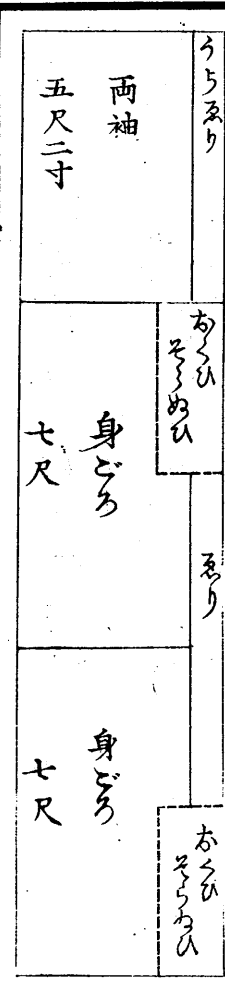 うらゑり
両袖
五尺二寸
おくひ
そらぬひ
身ごろ
七尺
ゑり
身ごろ
七尺
おくひ
そらぬひ